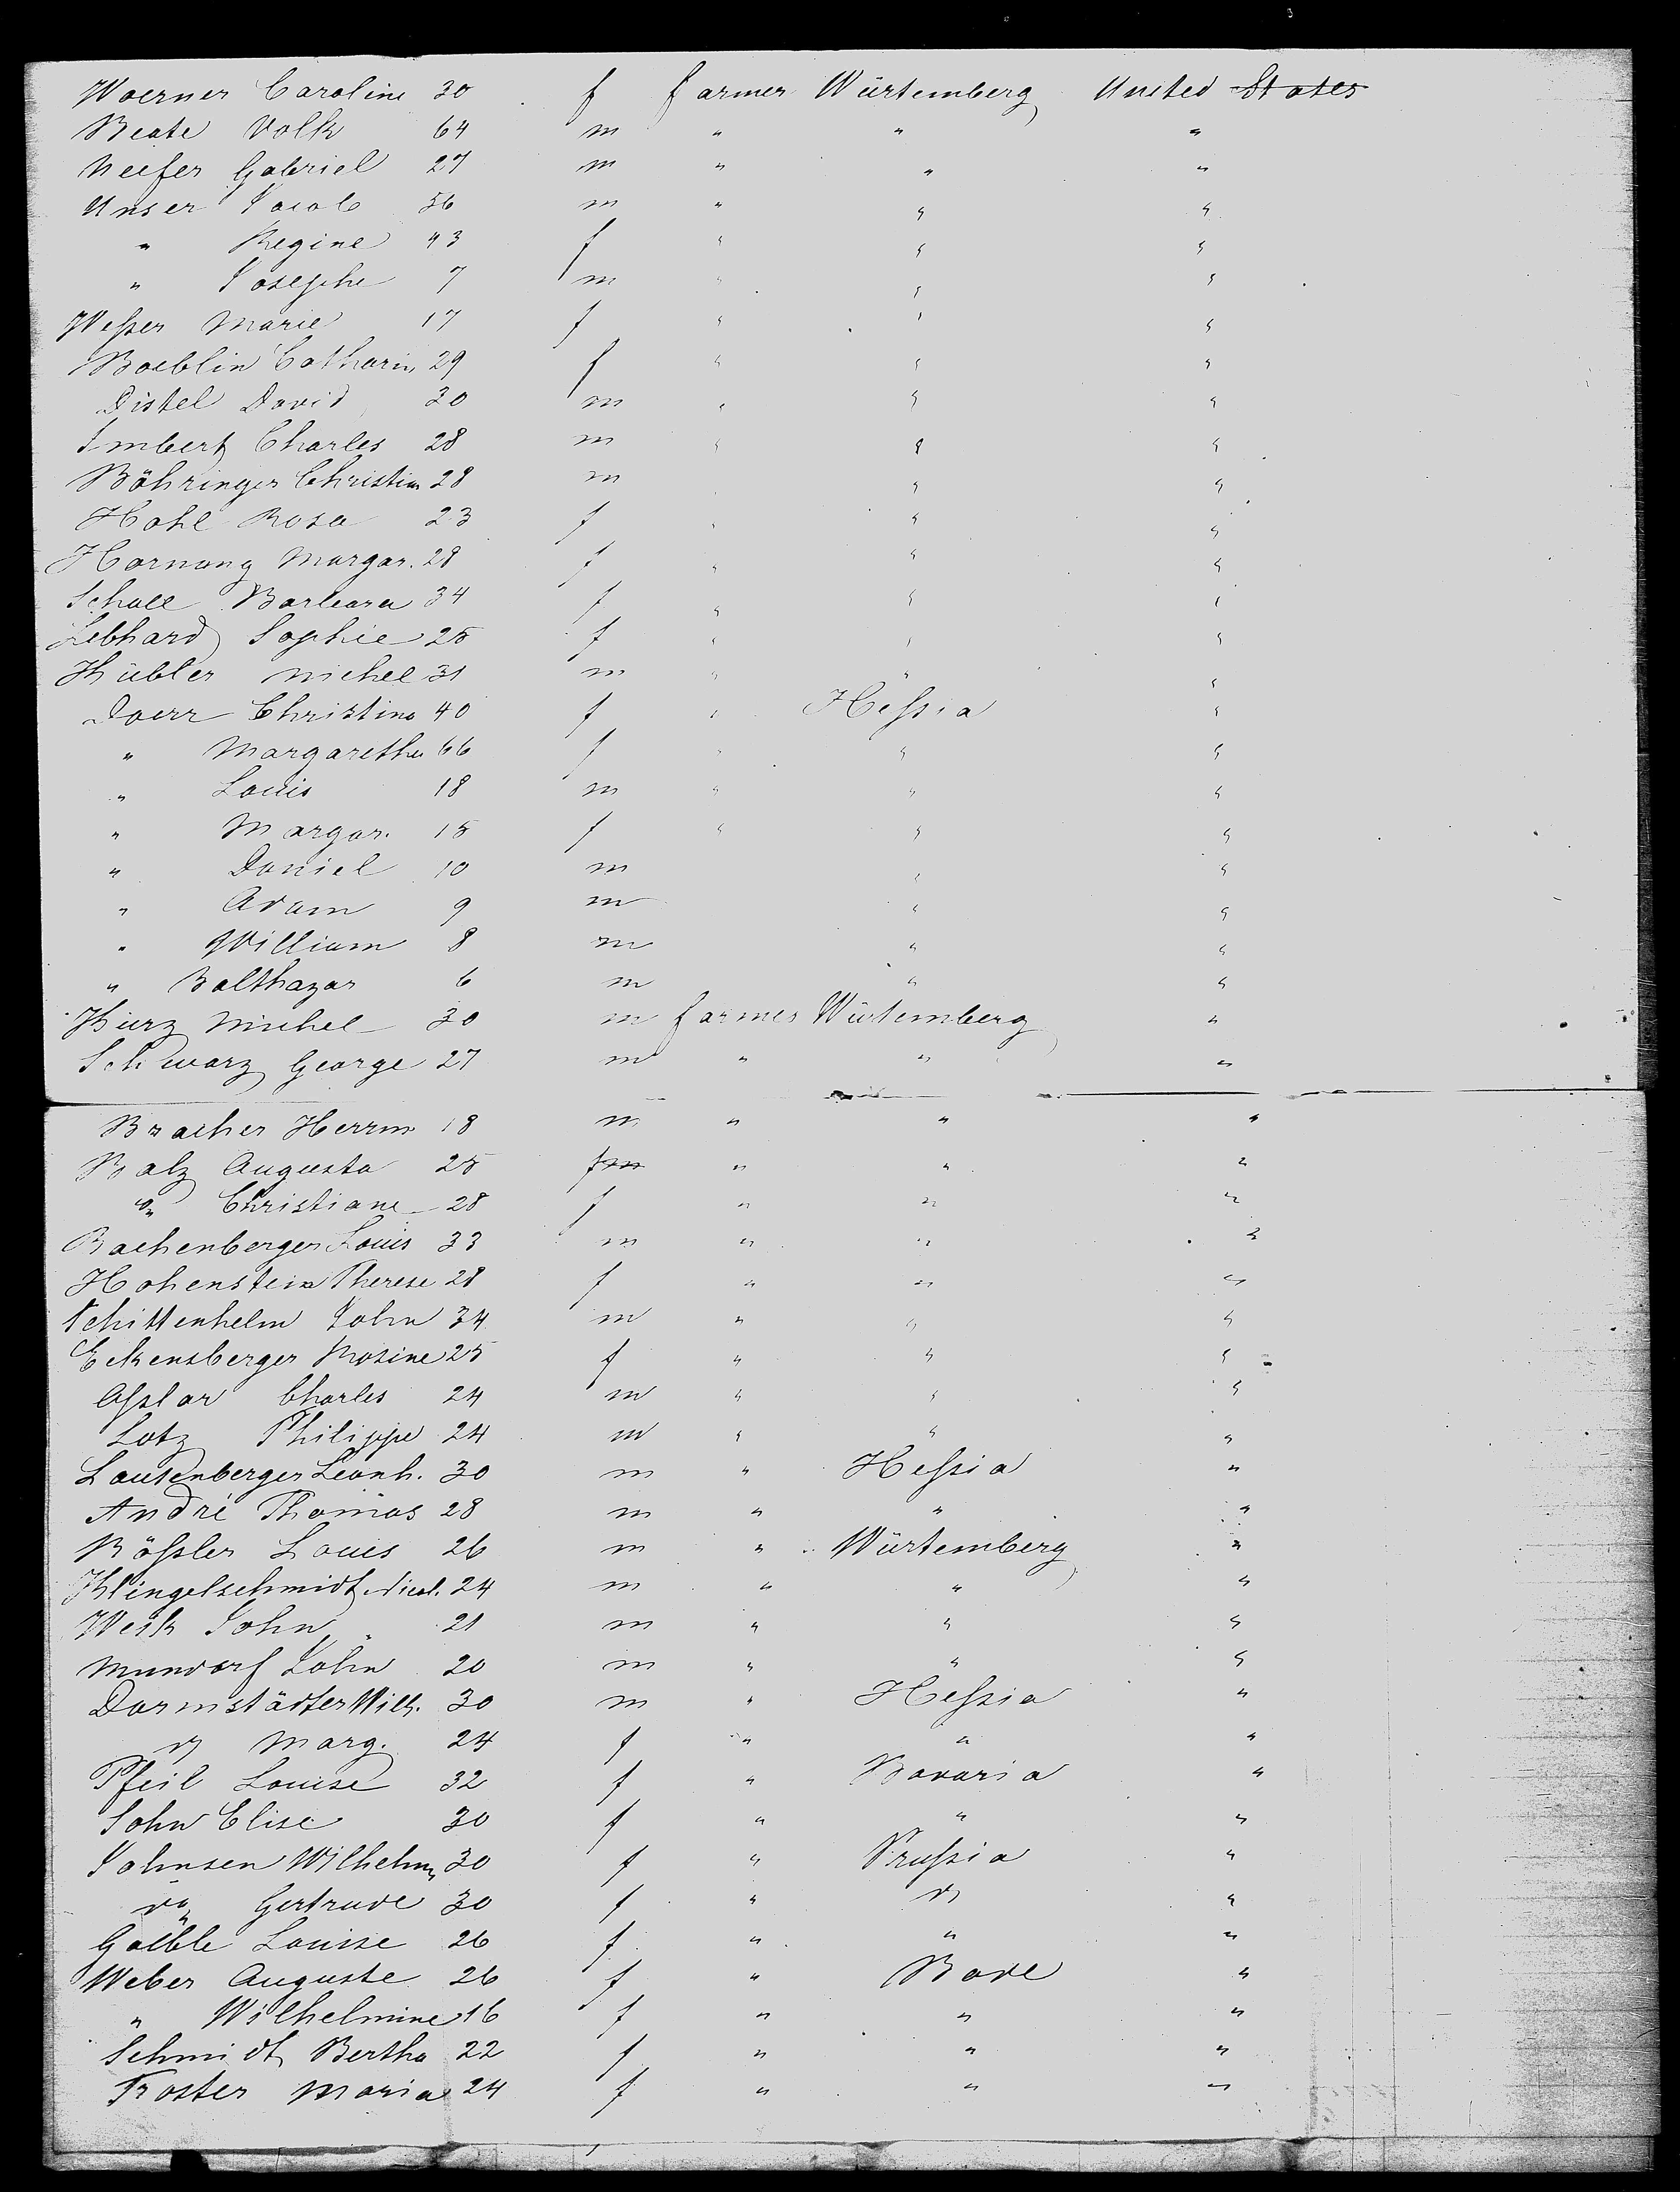 Woerner Caroline 30 f farmer Würtemberg United States
Beate Volk 64 m " " "
Neefer Gabriel 27 m " " "
Unser Jacob 56 m " " "
" Regine 43 f " " "
" Josephe 7 m " " "
Weßer Marie 17 f " " "
Boeblin Catharin 29 f " " "
Distel David 30 m " " "
Imbert Charles 28 m " " "
Böhringer Christian 28 m " " "
Hohl Rosa 23 f " " "
Hornung Margar. 28 f " " "
Schall Barbara 34 f " " "
Lebhard Sophie 25 f " " "
Kübler Michel 31 m " " "
Doerr Christine 40 f " Heßia "
" Margaretha 66 f " " "
" Louis 18 m " " "
" Margar. 15 f " " "
" Daniel 10 m " "
" Adam 9 m " "
" William 8 m " "
" Balthazar 6 m " "
Kurz Michel 30 m farmer Würtemberg "
Schwarz George 27 m " " "
Bracher Herrm 18 m " " "
Balz Augusta 25 f m " " "
" Christiane 28 f " " "
Bachenberger Louis 33 m " " "
Hohenstein Therese 28 f " " "
Schittenhelm John 34 m " " "
Eckensberger Rosine 25 f " " "
Aßlar Charles 24 m " " "
Lotz Philippe 24 m " " "
Lautenberger Leonh. 30 m " Heßia "
André Thomas 28 m " " "
Rößler Louis 26 m " Würtemberg "
Klingelschmidt Nicol. 24 m " " "
Weik John 21 m " " "
Mundorf John 20 m " " "
Darmstädter Wilh. 30 m " Heßia "
do Marg. 24 f " " "
Pfeil Louise 32 f " Bavaria "
Sohn Elise 30 f " " "
Johnsen Wilhelm 30 f " Prußia "
do Gertrude 30 f " do "
Goebble Louise 26 f " " "
Weber Auguste 26 f " Bade "
" Wilhelmine 16 f " " "
Schmidt Bertha 22 f " " "
Troster Maria 24 f " " "